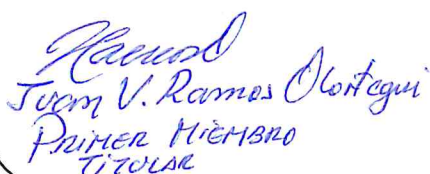 Juan V. Ramos Olortegui
PRIMER MIEMBRO
TITULAR